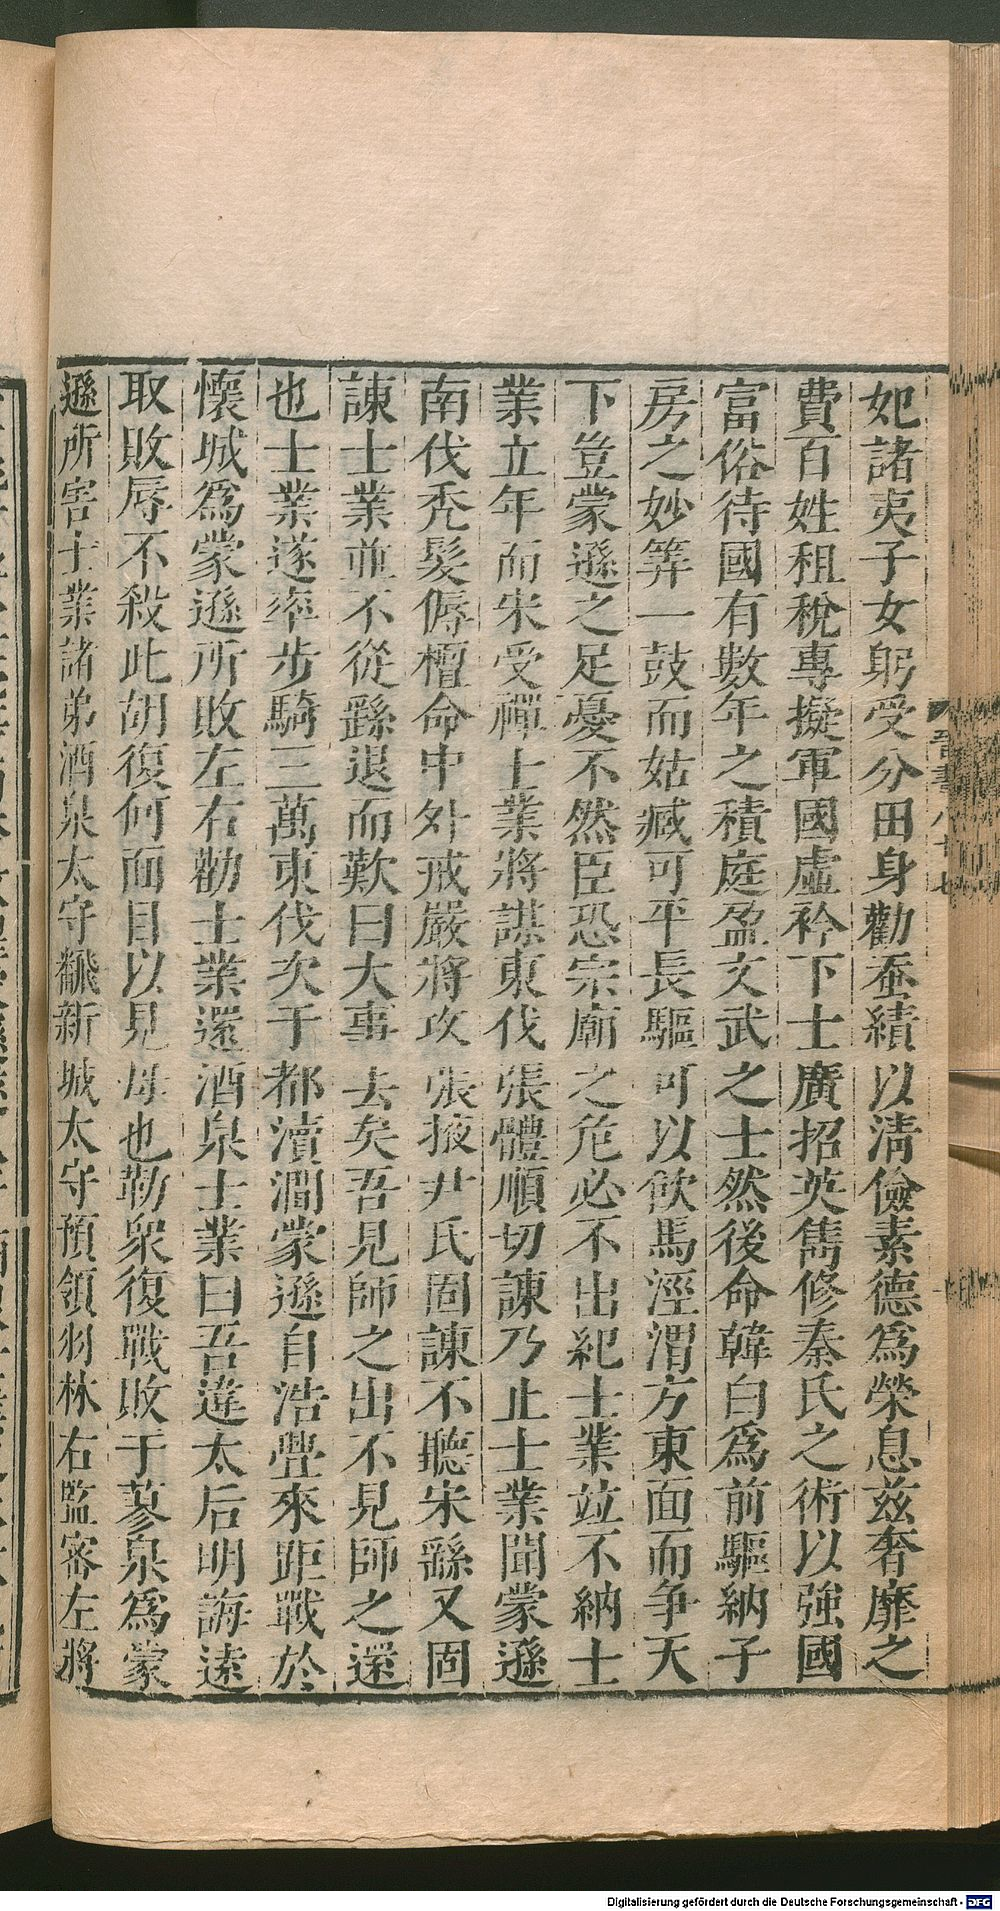 妃諸夷子女躬受分田身勸蚕績以淸儉素德爲榮息兹奢靡之
費百姓租稅專擬軍國虛衿下士廣招英雋修秦氏之術以強國
富俗待國有數年之積庭盈文武之士然後命韓白爲前驅納子
房之妙筭一鼓而姑臧可平長驅可以飲馬涇渭方東面而爭天
下豈蒙遜之足憂不然臣恐宗廟之危必不出紀士業竝不納士
業立年而宋受禪士業將謀東伐張體順切諫乃止士業聞蒙遜
南伐禿髮傉檀命中外戒嚴將攻張掖尹氏固諫不聽宋繇又固
諫士業並不從繇退而歎曰大事去矣吾見師之出不見師之還
也士業遂率步騎三萬東伐次于都瀆澗蒙遜自浩亹來距戰於
懷城爲蒙遜所敗左右勸士業還酒泉士業曰吾違太后明誨遠
取敗辱不殺此胡復何面目以見母也勒衆復戰敗于蓼泉爲蒙
遜所害士業諸弟酒泉太守翻新城太守預領羽林右監密左將
晉書八十七
Digitalisierung gefördert durch die Deutsche Forschungsgemeinschaft - DFG